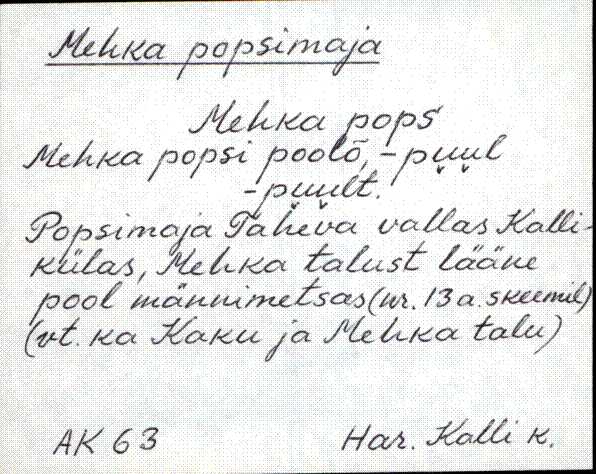 Mehka popsimaja
Mehka pops
Mehka popsi poolõ, -pu̬u̬l
-pu̬u̬lt.
Popsimaja Taheva vallas Kalli-
külas, Mehka talust lääne
pool männimetsas (nr. 13 a. skeemil)
(vt. ka Kaku ja Mehka talu)
AK 63 Har. Kalli k.